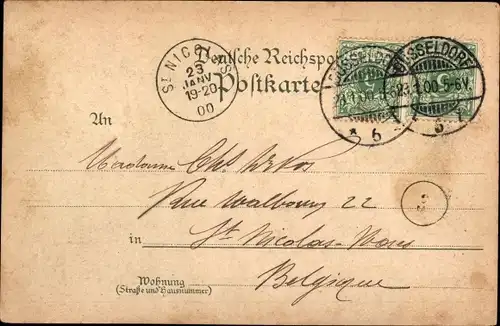 Deutsche Reichspost
Postkarte
ST NICOLAS
23
JANV
19-20
00
DÜSSELDORF
23.1.00.5-6V.
* 6
DÜSSELDORF
23.1.00.5-6V.
An
Madame Chs
Rue Walbourg 22
in St Nicolas-Waes
Belgique
Wohnung
(Straße und Hausnummer)